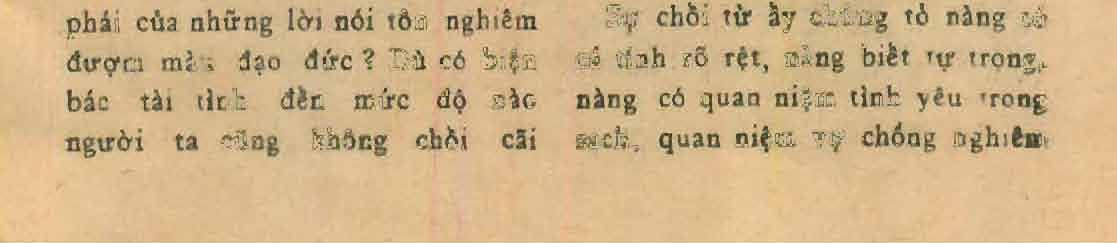 phái của những lời nói tôn nghiêm
đượm màu đạo đức ? Dù có biện
bác tài tình đến mức độ nào
người ta cũng không chồi cãi
Sự chồi từ ầy chứng tỏ nàng có
cá tính rõ rệt, nàng biết tự trọng,
nàng có quan niệm tình yêu trong
sạch, quan niệm vợ chồng nghiêm